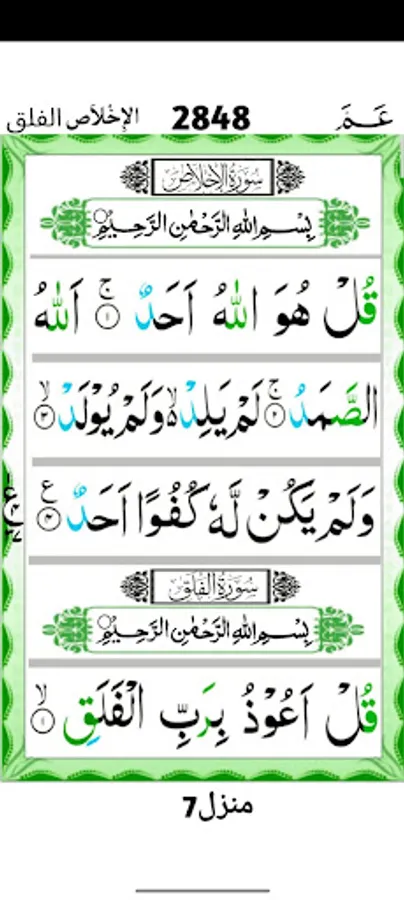 الإِخْلاَص الفلق 2848 عَـمَّ
سُورَةُ الْإِخْلَاصِ
بِسْمِ اللّٰهِ الرَّحْمٰنِ الرَّحِيْمِ
قُلْ هُوَ اللّٰهُ اَحَدٌ ۚ‏﴿۱﴾ اَللّٰهُ
الصَّمَدُ ۚ‏﴿۲﴾ لَمْ يَلِدْ ۙ وَلَمْ يُوْلَدْ ۙ‏﴿۳﴾
وَلَمْ يَكُنْ لَّهٗ كُفُوًا اَحَدٌ ﴿۴﴾ ع
سُورَةُ الْفَلَقِ
بِسْمِ اللّٰهِ الرَّحْمٰنِ الرَّحِيْمِ
قُلْ اَعُوْذُ بِرَبِّ الْفَلَقِ ۙ‏﴿۱﴾
منزل7